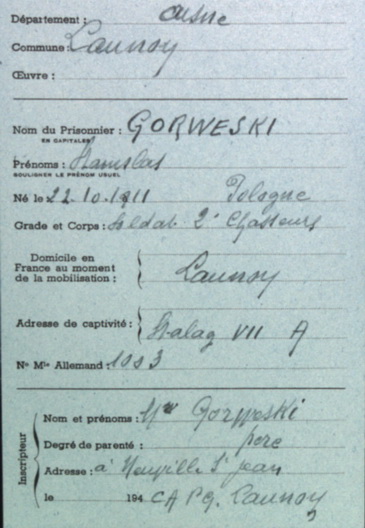 Département : Aisne
Commune : Launoy
Œuvre :
Nom du Prisonnier : GORWESKI
EN CAPITALES
Prénoms : Stanislas
SOULIGNER LE PRÉNOM USUEL
Né le 22.10.1911 Pologne
Grade et Corps : Soldat 2e Chasseurs
Domicile en
France au moment
de la mobilisation : Launoy
Adresse de captivité : Stalag VII A
No Mle Allemand : 1093
Inscripteur
Nom et prénoms : Mr Gorweski
Degré de parenté : père
Adresse : à Neuville St Jean
le 194 C A P G. Launoy